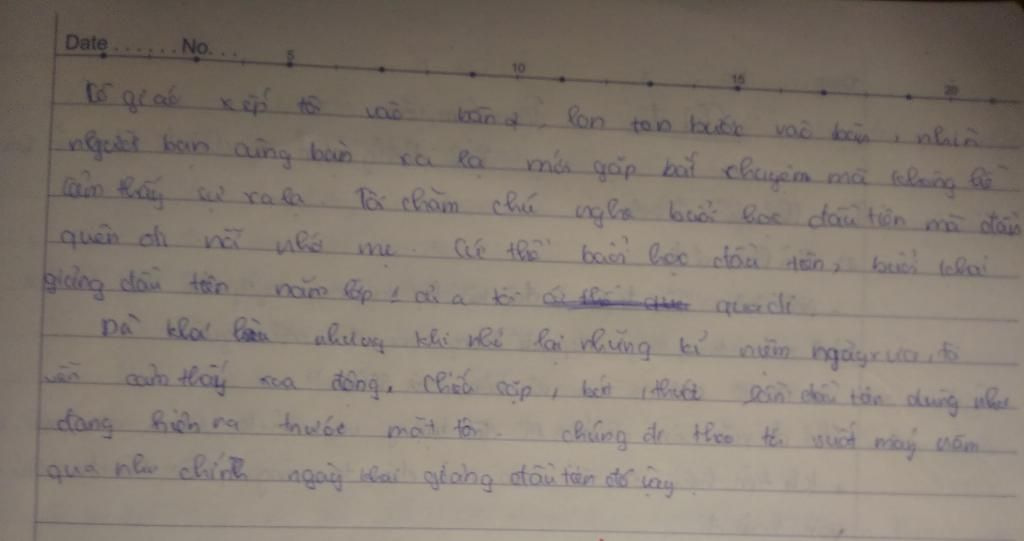 Date ...... No. ... 5 10 15 20
Cô giáo xếp tôi vào bàn 2, lon ton bước vào bàn, nhìn
người bạn cùng bàn xa lạ mới gặp bắt chuyện mà không hề
cảm thấy sự xa lạ. Tôi chăm chú nghe buổi học đầu tiên mà dần
quên đi nỗi nhớ mẹ. Cứ thế buổi học đầu tiên, buổi khai
giảng đầu tiên năm lớp 1 của tôi qua đi.
Dã khá lâu nhưng khi nhớ lại những kỉ niệm ngày xưa, tô
vẫn cảm thấy xúc động. Chiếc cặp, bút, thước lần đầu tiên dùng như
đang hiện ra trước mắt tôi. chúng đi theo tôi suốt mấy năm
qua như chính ngày khai giảng đầu tiên đó vậy.